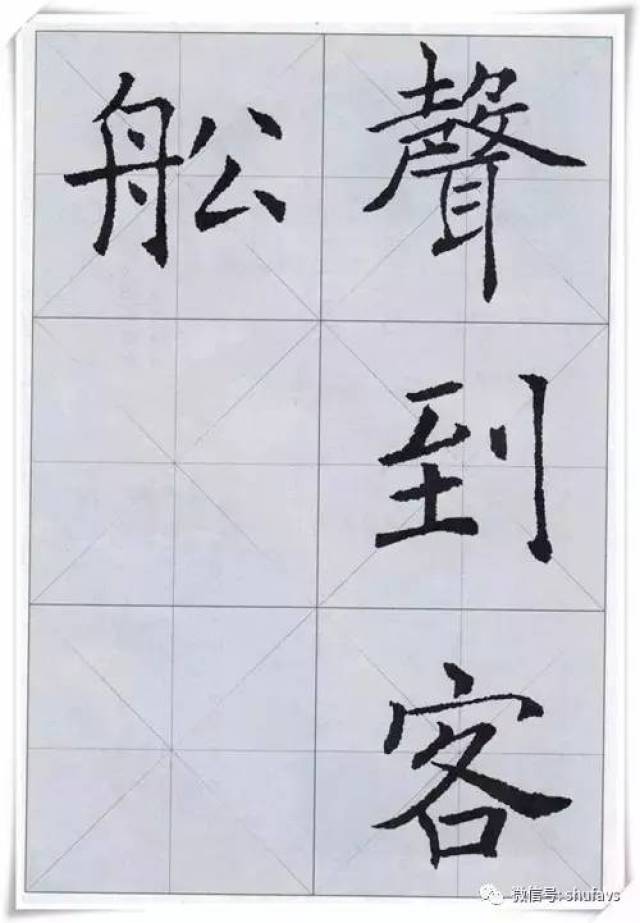 聲到客
舩
微信号: shufavs